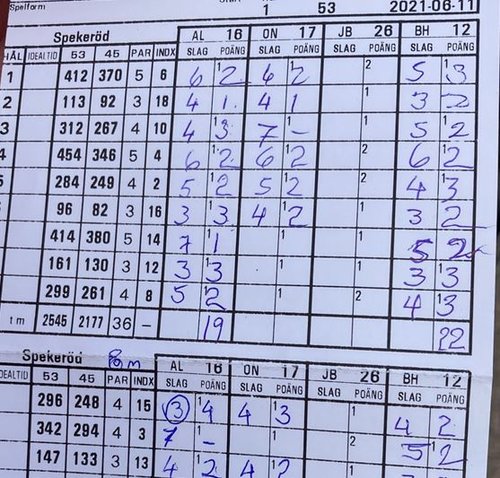 Spelform 1 53 2021-06-11
Spekeröd AL 16 ON 17 JB 26 BH 12
HÅL IDEALTID 53 45 PAR INDX SLAG POÄNG SLAG POÄNG SLAG POÄNG SLAG POÄNG
1 412 370 5 6 6 1 2 6 1 2 2 5 1 3
2 113 92 3 18 4 1 4 1 3 2
3 312 267 4 10 4 1 3 7 1 - 1 5 1 2
4 454 346 5 4 6 1 2 6 1 2 2 6 1 2
284 249 4 2 5 1 2 5 1 2 2 4 1 3
96 82 3 16 3 1 3 4 1 2 1 3 2
414 380 5 14 7 1 1 1 1 5 2
161 130 3 12 3 1 3 1 1 3 1 3
299 261 4 8 5 1 2 1 2 4 1 3
2545 2177 36 - 19 22
Spekeröd AL 16 ON 17 JB 26 BH 12
IDEALTID 53 45 PAR INDX SLAG POÄNG SLAG POÄNG SLAG POÄNG SLAG POÄNG
296 248 4 15 3 1 4 4 1 3 1 4 2
342 294 4 3 7 1 - 1 2 5 1 2
147 133 3 13 4 1 2 4 1 2 1